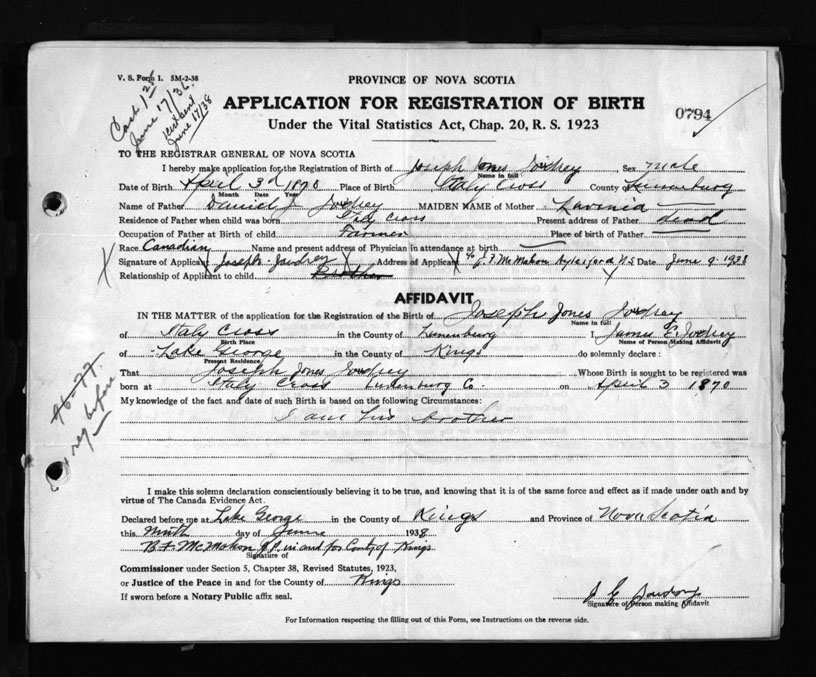 V. S. Form 1. 5M-2-38
June 17/38
PROVINCE OF NOVA SCOTIA
APPLICATION FOR REGISTRATION OF BIRTH
0794
Under the Vital Statistics Act, Chap. 20, R. S. 1923
TO THE REGISTRAR GENERAL OF NOVA SCOTIA
I hereby make application for the Registration of Birth of Joseph Jones Joudrey Sex Male
Name in full
Date of Birth April 3d 1870 Place of Birth Italy Cross County of Lunenburg
Month Date Year
Name of Father Daniel J Joudrey MAIDEN NAME of Mother Lavenia
Residence of Father when child was born Italy Cross Present address of Father dead
Occupation of Father at Birth of child Farmer Place of birth of Father
Race Canadian Name and present address of Physician in attendance at birth
Signature of Applicant Joseph Joudrey Address of Applicant % J. F. McMahon Aylesford N.S Date June 9 1938
Relationship of Applicant to child Brother
AFFIDAVIT
IN THE MATTER of the application for the Registration of the Birth of Joseph Jones Joudrey
Name in full
of Italy Cross in the County of Lunenburg I James E Joudrey
Birth Place Name of Person Making Affidavit
of Lake George in the County of Kings do solemnly declare :
Present Residence
That Joseph Jones Joudrey, Whose Birth is sought to be registered was
born at Italy Cross Lunenburg Co. on April 3 1870
My knowledge of the fact and date of such Birth is based on the following Circumstances:
I am his brother
reg before
I make this solemn declaration conscientiously believing it to be true, and knowing that it is of the same force and effect as if made under oath and by
virtue of The Canada Evidence Act.
Declared before me at Lake George in the County of Kings and Province of Nova Scotia
this Ninth day of June 1938
B F McMahon J.P. in and for County of Kings
Signature of
Commissioner under Section 5, Chapter 38, Revised Statutes, 1923,
or Justice of the Peace in and for the County of Kings
If sworn before a Notary Public affix seal.
J E Joudrey
Signature of Person making Affidavit
For Information respecting the filling out of this Form, see Instructions on the reverse side.